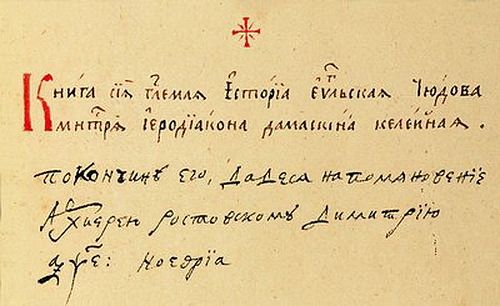 Книга сїѧ гл҃емаѧ Їсторїа еѵⷢльская Чюдова
мн҃трѧ їеродїакона дамаскїна келейная .
по кончинѣ его, дадеся на помяновенїе
Архїерею ростовскому Димитрїю
҂аѱе҃: ноеврїа